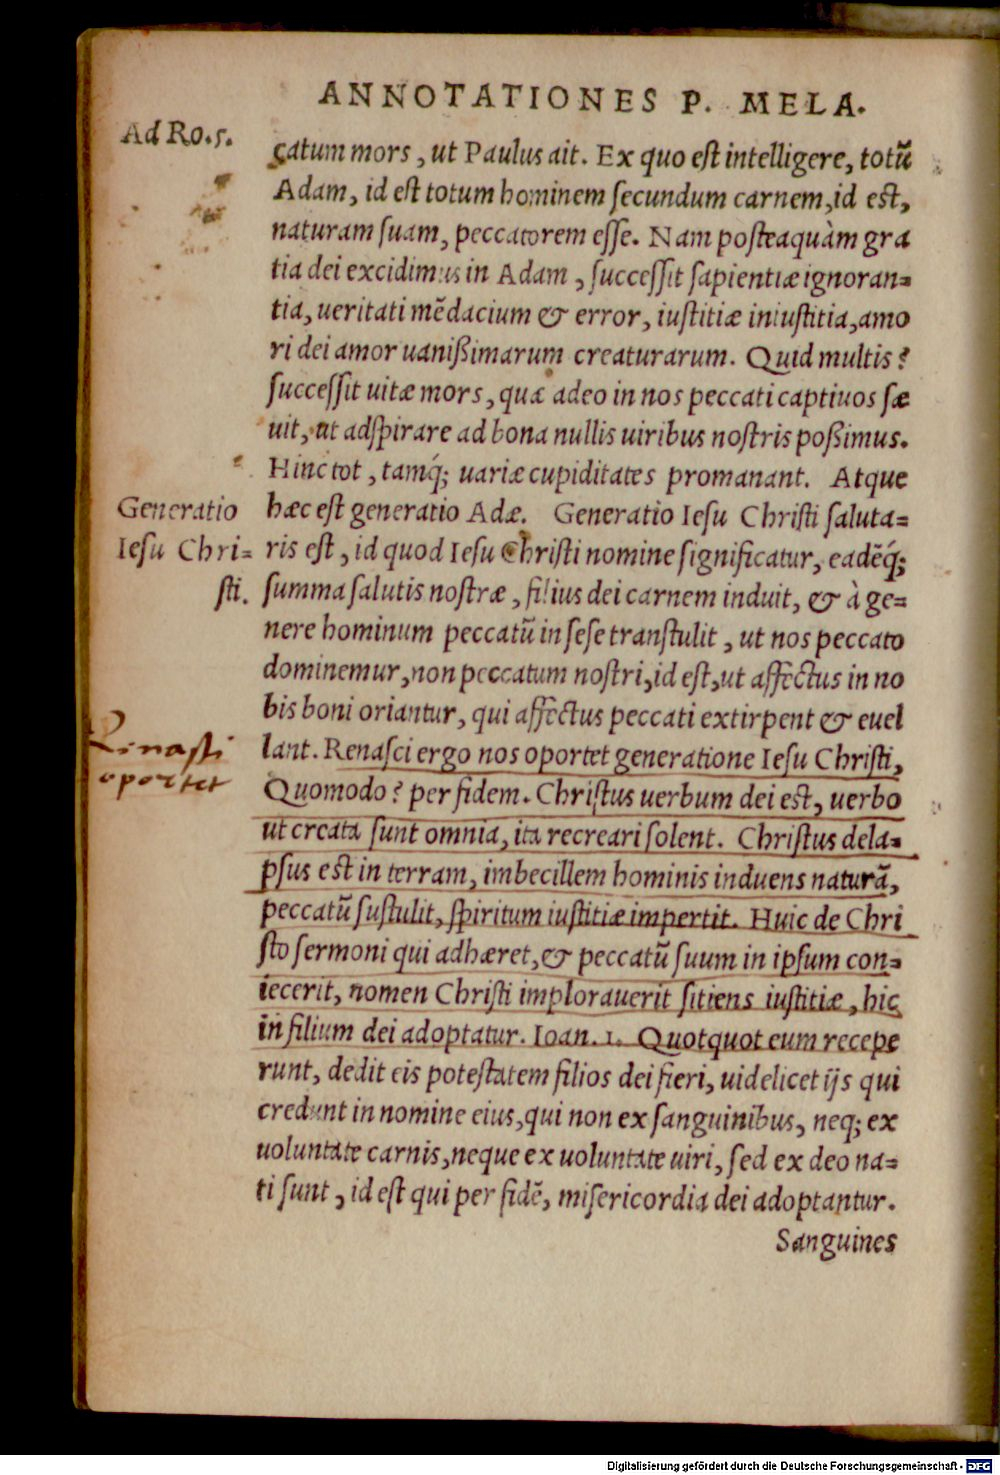 ANNOTATIONES P. MELA.
Ad Ro. 5.
catum mors, ut Paulus ait. Ex quo est intelligere, totũ
Adam, id est totum hominem secundum carnem, id est,
naturam suam, peccatorem esse. Nam posteaquàm gra
tia dei excidimus in Adam, successit sapientiæ ignoran-
tia, ueritati mẽdacium & error, iustitiæ iniustitia, amo
ri dei amor uanißimarum creaturarum. Quid multis?
successit uitæ mors, quæ adeo in nos peccati captiuos sæ
uit, ut adspirare ad bona nullis uiribus nostris poßimus.
Hinc tot, tamq́; uariæ cupiditates promanant. Atque
Generatio
Iesu Chri-
sti.
hæc est generatio Adæ. Generatio Iesu Christi saluta-
ris est, id quod Iesu Christi nomine significatur, eadẽq́;
summa salutis nostræ, filius dei carnem induit, & à ge-
nere hominum peccatũ in sese transtulit, ut nos peccato
dominemur, non peccatum nostri, id est, ut affectus in no
bis boni oriantur, qui affectus peccati extirpent & euel
Renasci
oportet
lant. Renasci ergo nos oportet generatione Iesu Christi,
Quomodo? per fidem. Christus uerbum dei est, uerbo
ut creata sunt omnia, ita recreari solent. Christus dela-
psus est in terram, imbecillem hominis induens naturã,
peccatũ sustulit, spiritum iustitiæ impertit. Huic de Chri
sto sermoni qui adhæret, & peccatũ suum in ipsum con-
iecerit, nomen Christi implorauerit sitiens iustitiæ, hic
in filium dei adoptatur. Ioan. 1. Quotquot eum recepe
runt, dedit eis potestatem filios dei fieri, uidelicet ijs qui
credunt in nomine eius, qui non ex sanguinibus, neq; ex
uoluntate carnis, neque ex uoluntate uiri, sed ex deo na-
ti sunt, id est qui per fidẽ, misericordia dei adoptantur.
Sanguines
Digitalisierung gefördert durch die Deutsche Forschungsgemeinschaft - DFG